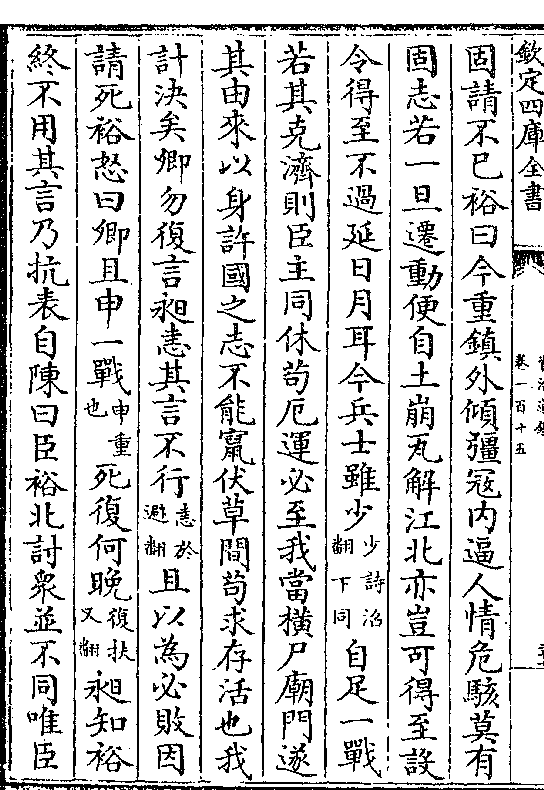 欽定四庫全書
資治通鑑
卷一百十五
固請不已裕曰今重鎮外傾彊冦内逼人情危駭莫有
固志若一旦遷動便自土崩瓦解江北亦豈可得至設
令得至不過延日月耳今兵士雖少少詩沼翻下同自足一戰
若其克濟則臣主同休茍厄運必至我當橫尸廟門遂
其由來以身許國之志不能竄伏草間茍求存活也我
計決矣卿勿復言昶恚其言不行恚於避翻且以為必敗因
請死裕怒曰卿且申一戰申重也死復何晚復扶又翻昶知裕
終不用其言乃抗表自陳曰臣裕北討衆並不同唯臣